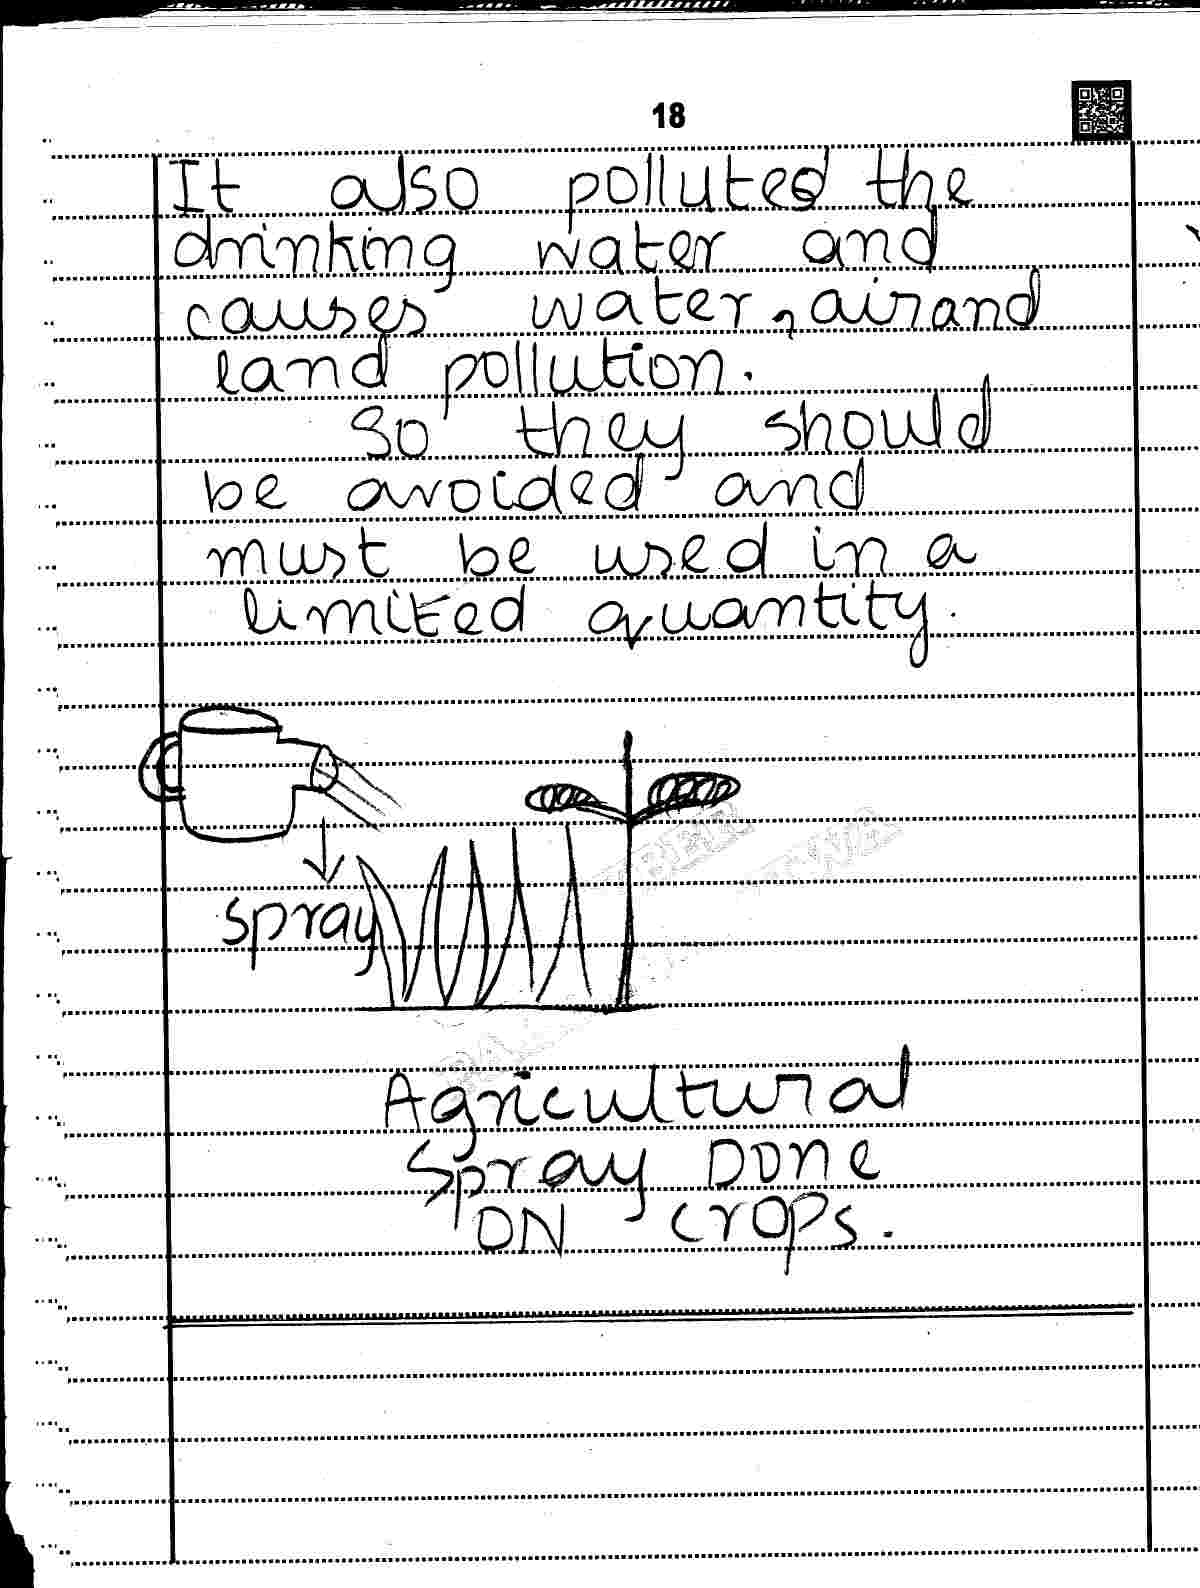 18
It also polluted the
drinking water and
causes water, air and
land pollution.
So they should
be avoided and
must be used in a
limited quantity.
spray
Agricultural
Spray Done
ON crops.